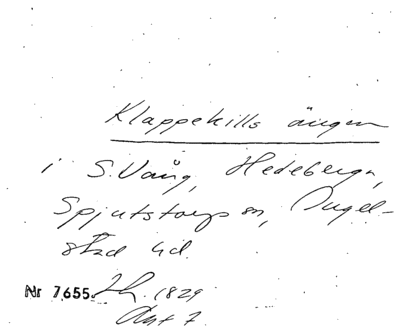 Klappekills ängen
i S. Vång, Hedeberga,
Spjutstorps sn, Ingel-
stad hd.
Nr 7655. 1829
Akt 7